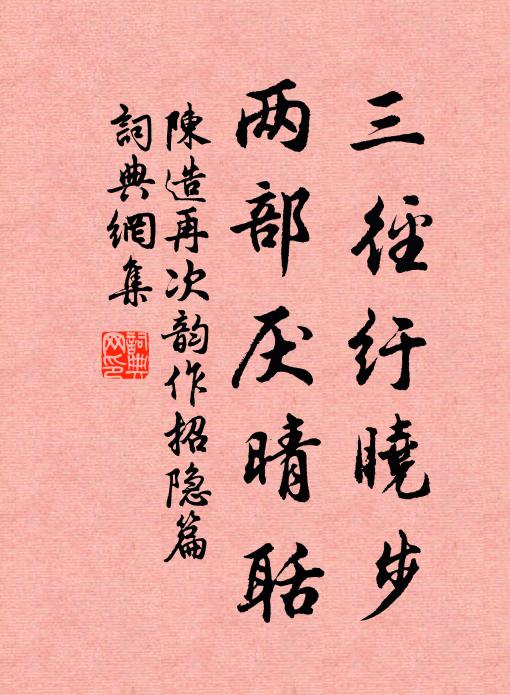 三徑紆曉步
两部厌晴聒
陳造再次韵作招隐篇
詞典網集
詞典
网印